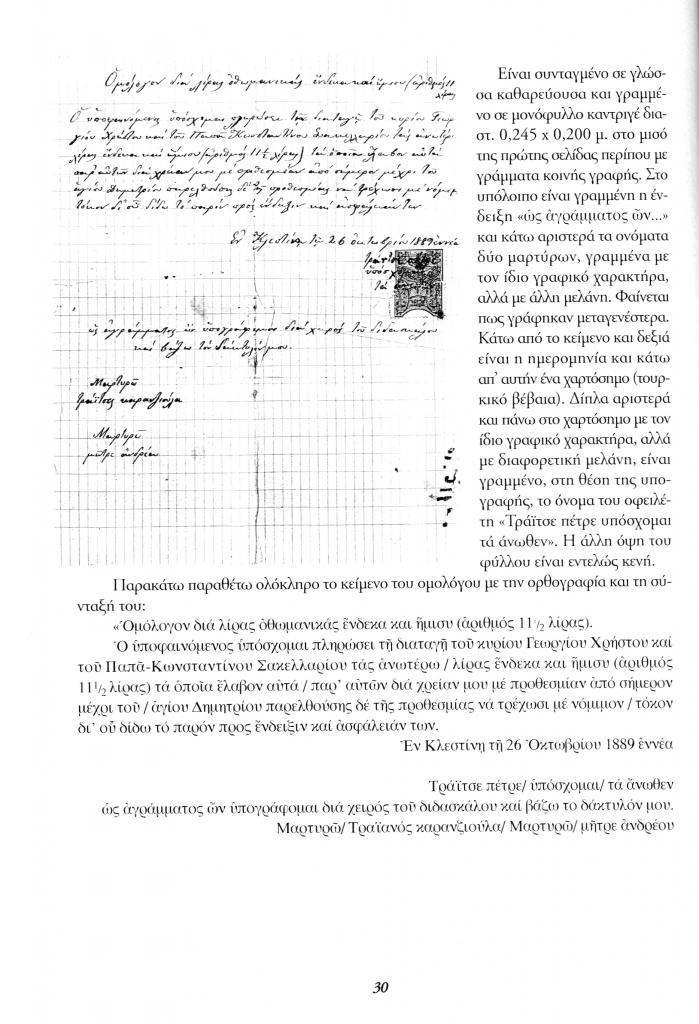 Ὁμόλογον διά λίρας ὀθωμανικάς ἕνδεκα καί ἥμισυ (ἀριθμός 11
λίρας)
Ὁ ὑποφαινόμενος ὑπόσχομαι πληρώσει τῇ διαταγῇ τοῦ κυρίου Γεωρ
γίου Χρήστου καί τοῦ Παπᾶ Κωνσταντίνου Σακελλαρίου τάς ἀνωτέρ.
λίρας ἕνδεκα καί ἥμισυ (ἀριθμός 11 ½ λίρας) τά ὁποῖα ἔλαβον αὐτά
παρ' αὐτῶν διά χρείαν μου μέ προθεσμίαν ἀπό σήμερον μέχρι τοῦ
ἁγίου Δημητρίου παρελθούσης δέ τῆς προθεσμίας νά τρέχωσι μέ νόμιμ.
τόκον δι' οὗ δίδω τό παρόν πρός ἔνδειξιν καί ἀσφάλειάν των
Ἐν Κλεστίνῃ τῇ 26 ὀκτωβρίου 1889 ἐννέα
τράιτσε πέτρε
ὑπόσχομαι
τά ἄνωθεν
ὡς ἀγράμματος ὤν ὑπογράφομαι διά χειρός τοῦ διδασκάλου
καί βάζω τόν δάκτυλόν μου.
Μαρτυρῶ
τράιτσος καρανζιούλα
Μαρτυρῶ
μήτρε ἀνδρέου
Είναι συνταγμένο σε γλώσ-
σα καθαρεύουσα και γραμμέ-
νο σε μονόφυλλο καντριγέ δια-
στ. 0,245 x 0,200 μ. στο μισό
της πρώτης σελίδας περίπου με
γράμματα κοινής γραφής. Στο
υπόλοιπο είναι γραμμένη η έν-
δειξη «ὡς ἀγράμματος ὤν...»
και κάτω αριστερά τα ονόματα
δύο μαρτύρων, γραμμένα με
τον ίδιο γραφικό χαρακτήρα,
αλλά με άλλη μελάνη. Φαίνεται
πως γράφηκαν μεταγενέστερα.
Κάτω από το κείμενο και δεξιά
είναι η ημερομηνία και κάτω
απ' αυτήν ένα χαρτόσημο (τουρ-
κικό βέβαια). Δίπλα αριστερά
και πάνω στο χαρτόσημο με τον
ίδιο γραφικό χαρακτήρα, αλλά
με διαφορετική μελάνη, είναι
γραμμένο, στη θέση της υπο-
γραφής, το όνομα του οφειλέ-
τη «Τράϊτσε πέτρε υπόσχομαι
τά άνωθεν». Η άλλη όψη του
φύλλου είναι εντελώς κενή.
Παρακάτω παραθέτω ολόκληρο το κείμενο του ομολόγου με την ορθογραφία και τη σύ-
νταξή του:
«Ὁμόλογον διά λίρας ὀθωμανικάς ἕνδεκα και ἥμισυ (ἀριθμός 11 1/2 λίρας).
Ὁ ὑποφαινόμενος ὑπόσχομαι πληρώσει τῇ διαταγῇ τοῦ κυρίου Γεωργίου Χρήστου καί
τοῦ Παπᾶ-Κωνσταντίνου Σακελλαρίου τάς ἀνωτέρω / λίρας ἕνδεκα καί ἥμισυ (ἀριθμός
11 1/2 λίρας) τά ὁποῖα ἔλαβον αὐτά / παρ' αὐτῶν διά χρείαν μου μέ προθεσμίαν ἀπό σήμερον
μέχρι τοῦ / ἁγίου Δημητρίου παρελθούσης δέ τῆς προθεσμίας νά τρέχωσι μέ νόμιμον / τόκον
δι' οὗ δίδω τό παρόν προς ἔνδειξιν καί ἀσφάλειάν των.
Ἐν Κλεστίνῃ τῇ 26 Ὀκτωβρίου 1889 ἐννέα
Τράϊτσε πέτρε/ ὑπόσχομαι/ τά ἄνωθεν
ὡς ἀγράμματος ὤν ὑπογράφομαι διά χειρός τοῦ διδασκάλου καί βάζω το δάκτυλόν μου.
Μαρτυρῶ/ Τραϊανός καρανζιούλα/ Μαρτυρῶ/ μῆτρε ἀνδρέου
30